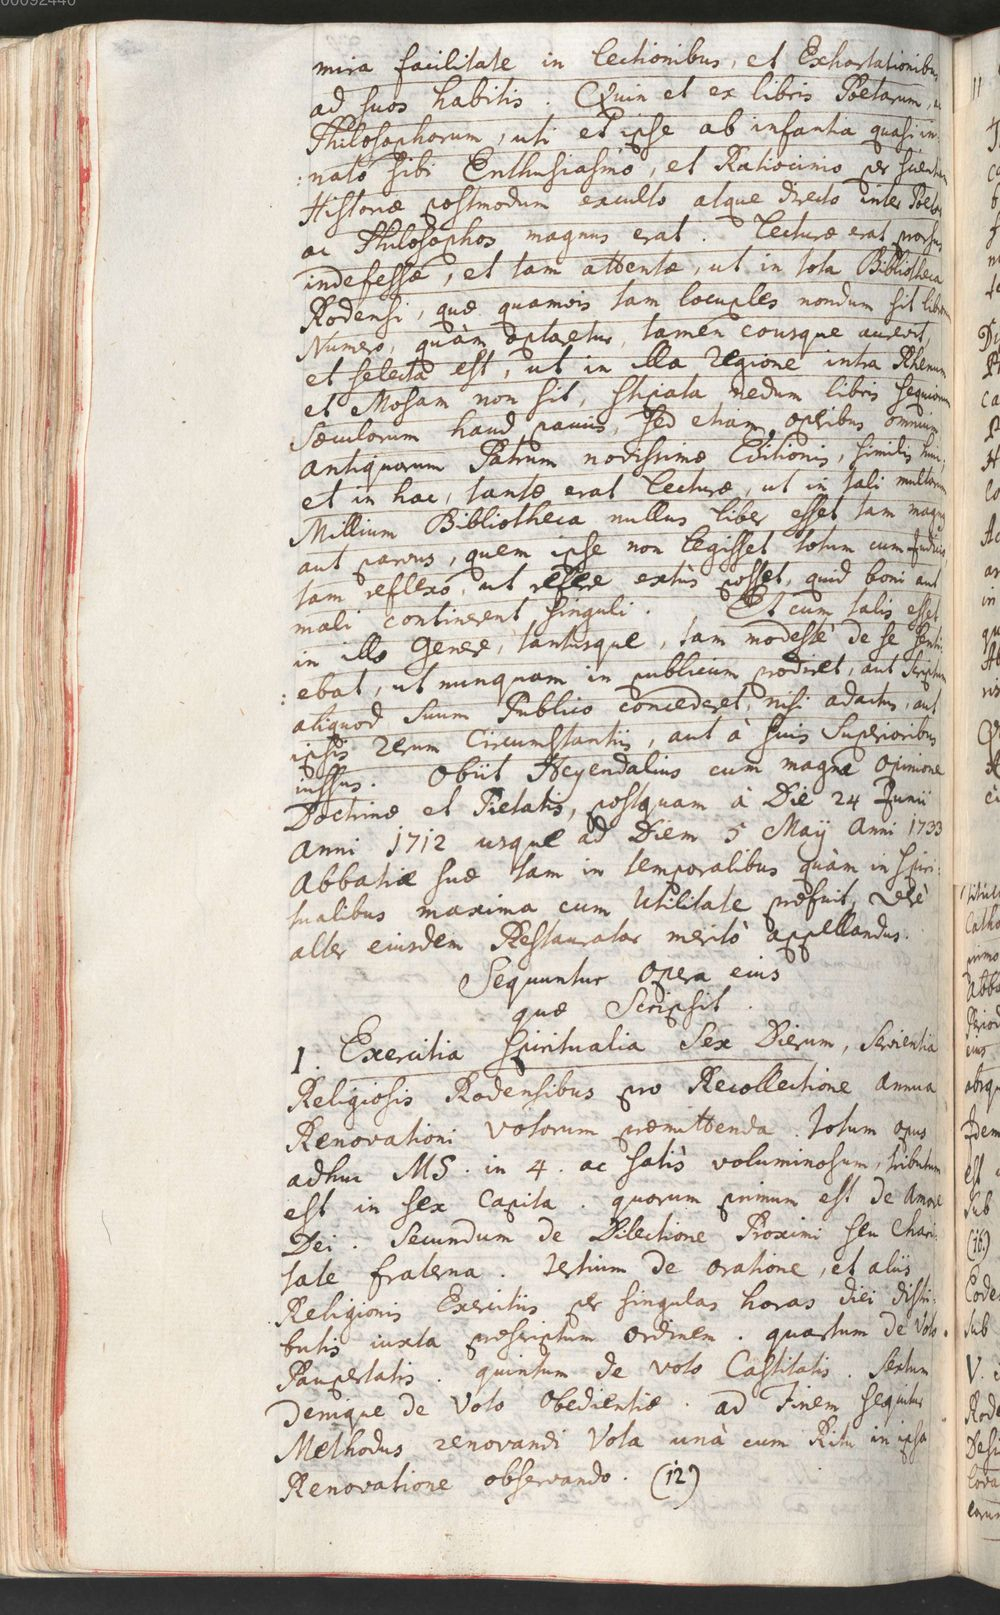 00092440
mira facilitate in lectionibus, et Exhortationibus
ad suos habitis. Quin et ex libris Poetarum, ac
Philosophorum, uti et ipse ab infantia quasi in:
:nato sibi Enthusiasmo, et Ratiocinio per scientiam
Historiæ postmodum exculto atque directo inter Poetas
ac Philosophos magnus erat. Lecturæ erat prorsus
indefessæ, et tam attentæ, ut in tota Bibliotheca
Rodensi, quæ quamvis tam locuples nondum sit librorum
Numero, quàm optaretur, tamen eousque
et selecta est, ut in illa regione intra Rhenum
et Mosam non sit, stipata nedum libris sequiorum
Sæculorum haud paucis, sed etiam operibus omnium
antiquorum Patrum novissimæ Editionis, similis huic,
et in hac, tantæ erat lecturæ, ut in tali multorum
Millium Bibliotheca nullus liber esset tam magnus
aut parvus, quem ipse non legisset totum cum Judicio
tam reflexo, ut posset, quid boni aut
mali continerent singuli. Et cum talis esset
in illo genere, tantusque, tam modestè de se senti:
:ebat, ut nunquam in publicum prodiret, aut scriptum
aliquod suum Publico concederet, nisi adactus, aut
ipsis rerum Circumstantiis, aut à suis Superioribus
iussus. Obiit Heyendalius cum magna opinione
Doctrinæ et Pietatis, postquam à Die 24 Junii
Anni 1712 usque ad Diem 5 Maÿ Anni 1733
Abbatiæ suæ tam in temporalibus quàm in spiri:
tualibus maxima cum Utilitate præfuit, verè
alter eiusdem Restaurator meritò appellandus.
Sequuntur opera eius
quæ Scripsit.
1. Exercitia spiritualia Sex Dierum, servientia
Religiosis Rodensibus pro Recollectione annua
Renovationi votorum præmittenda. Totum opus
adhuc MS. in 4. ac satis voluminosum, tributum
est in sex Capita. quorum primum est de Amore
Dei. Secundum de Dilectione Proximi seu Chari:
tate fraterna. Tertium de oratione, et aliis
Religionis Exercitiis per singulas horas diei distri:
butis iuxta præscriptum ordinem. quartum de Voto
Paupertatis. quintum de voto Castitatis. Sextum
Denique de Voto Obedientiæ. ad Finem sequitur
Methodus renovandi Vota unà cum Ritu in ipsa
Renovatione observando. (12)